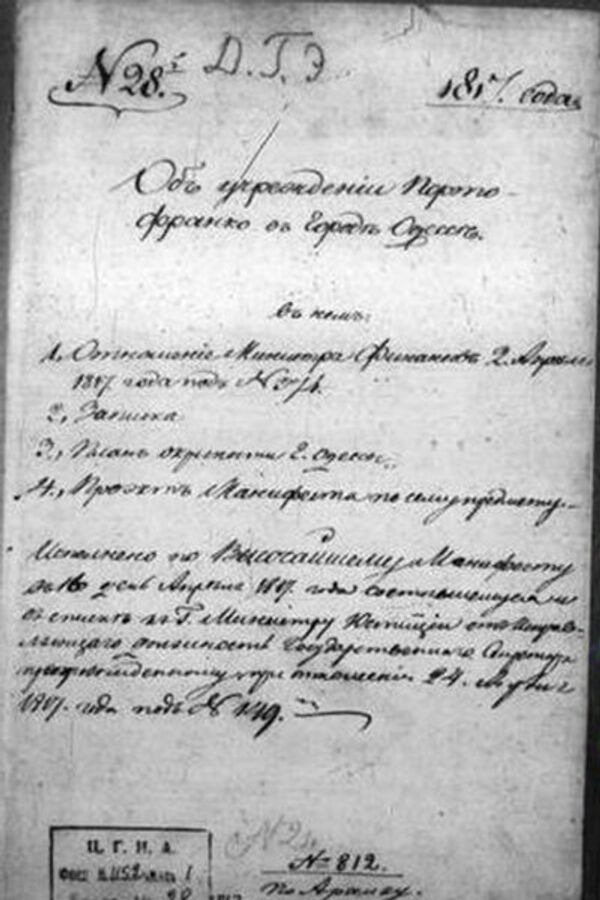 № 28. Д. Г. Э.
1817. года
Объ учрежденіи Порто-
франко въ городѣ Одессѣ.
въ немъ:
1, Отношеніе Министра Финансовъ 2. Апрѣля
1817. года подъ №
2, Записка
3, Планъ окрестности г. Одессы.
4, Проэктъ Манифеста по сему предмету.
Исполнено по Высочайшему Манифесту
въ 16 день Апрѣля 1817. года состоявшемуся и
въ спискѣ къ Г. Министру Юстиціи отъ Исправ-
ляющаго должность Государственнаго Секретаря
препровожденному при отношеніи 24.
1817. года подъ № 149.
Ц. Г. И. А.
ФОНД 1152 1
28
№ 24
№ 812.
по Архиву.